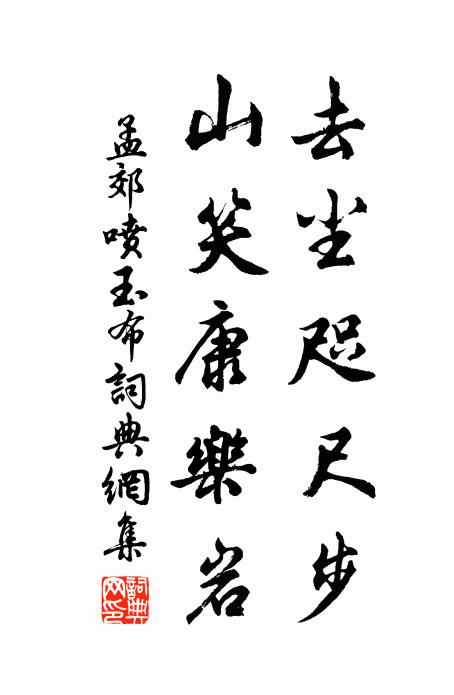 去尘咫尺步
山笑康樂岩
孟郊噴玉布詞典網集
詞典
网印